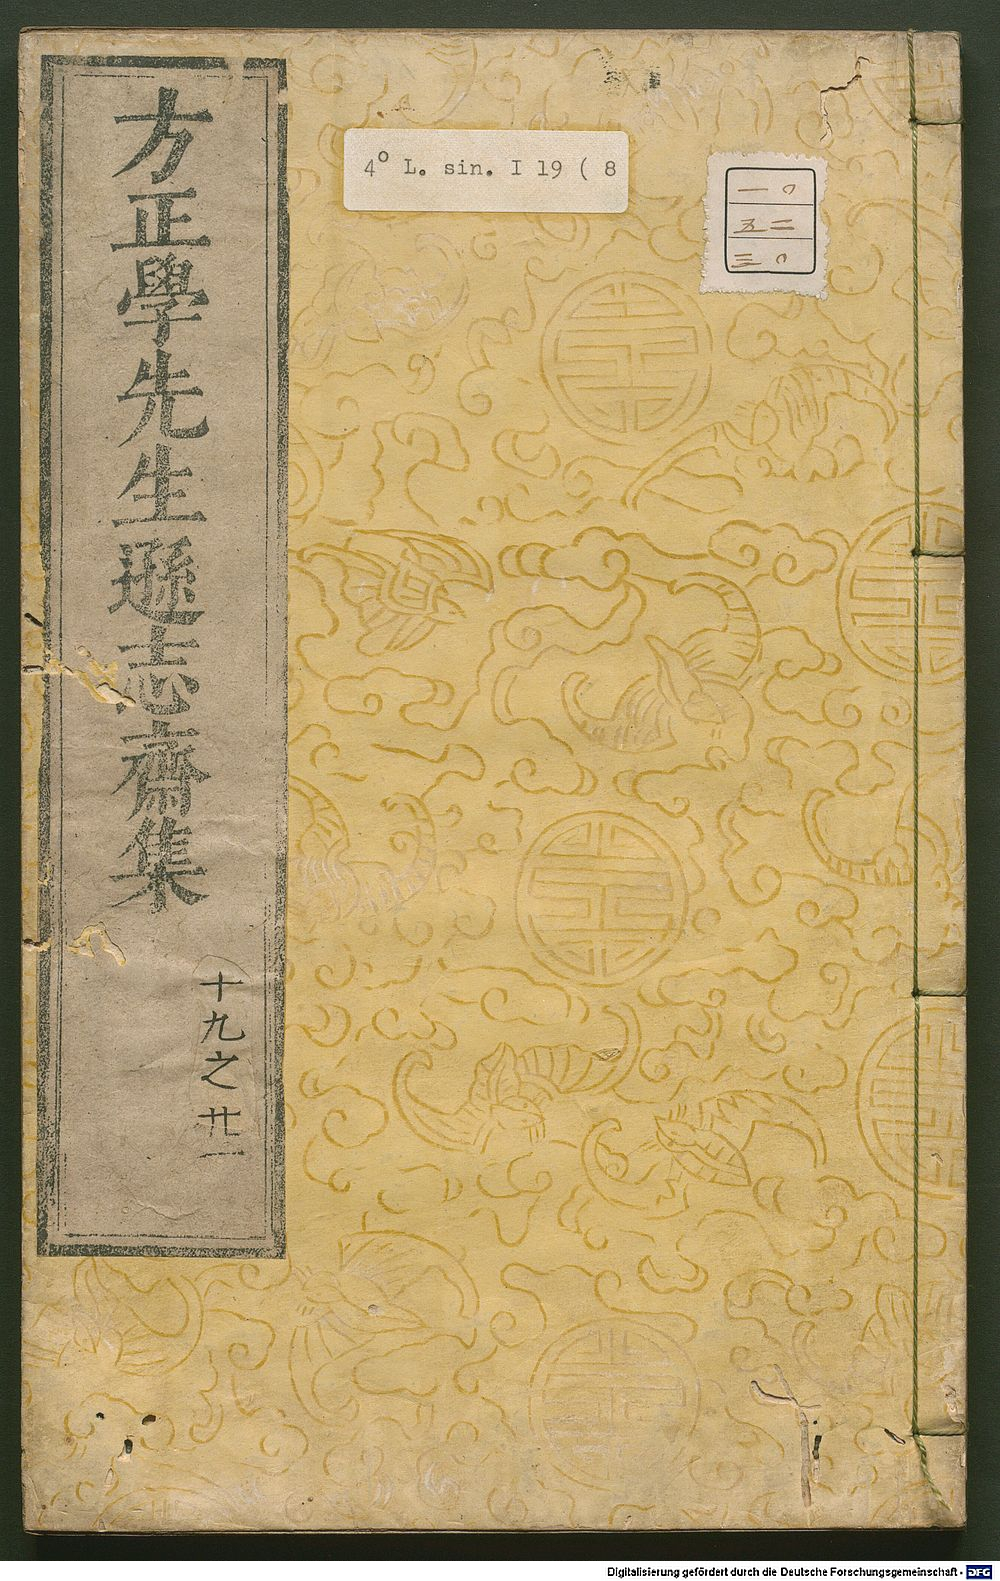 方正學先生遜志齋集
十九之廿一
4° L. sin. I 19 ( 8
一〇
五二
三〇
Digitalisierung gefördert durch die Deutsche Forschungsgemeinschaft - DFG